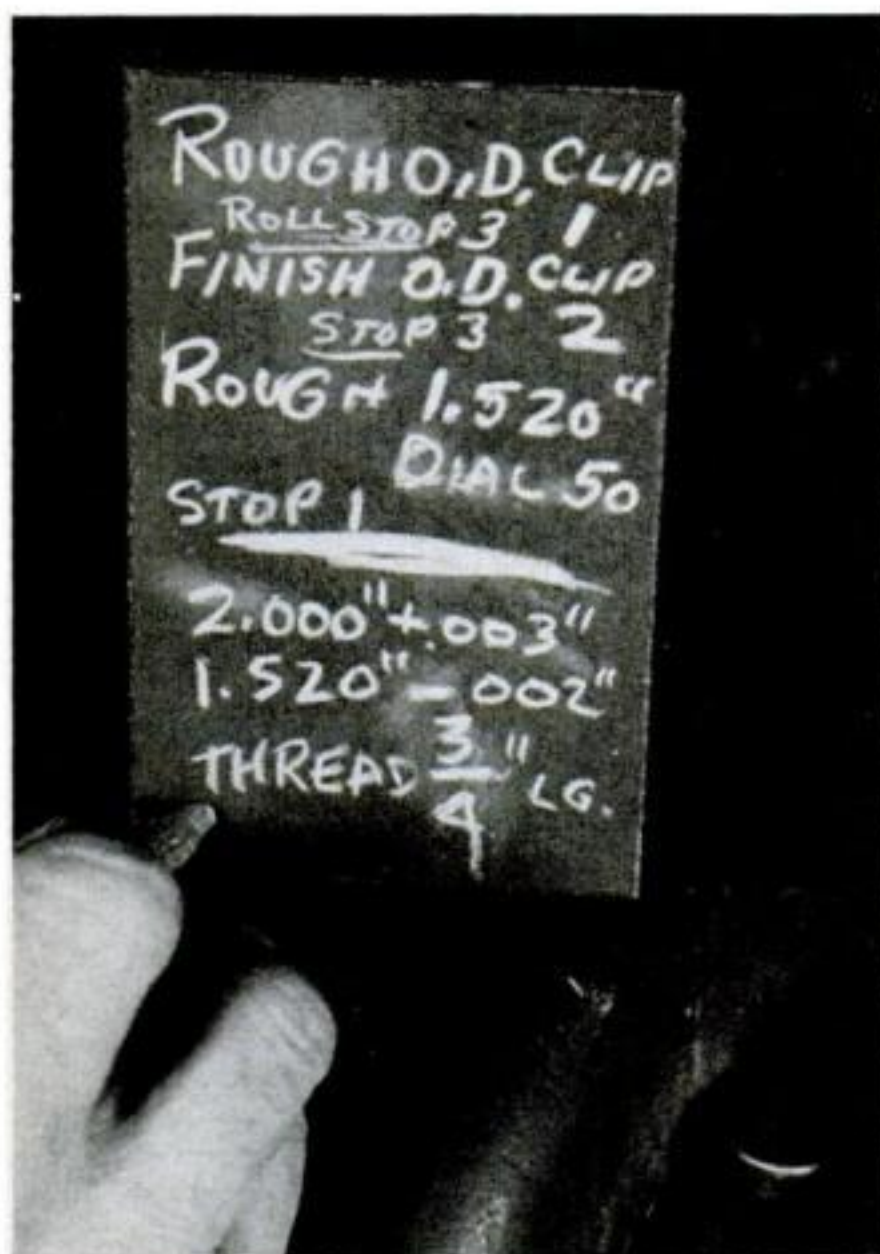 ROUGH O.D. CLIP
ROLL STOP 3 1
FINISH O.D. CLIP
STOP 3 2
ROUGH 1.520"
DIAL 50
STOP 1
2.000" +.003"
1.520" -.002"
THREAD 3/4" LG.